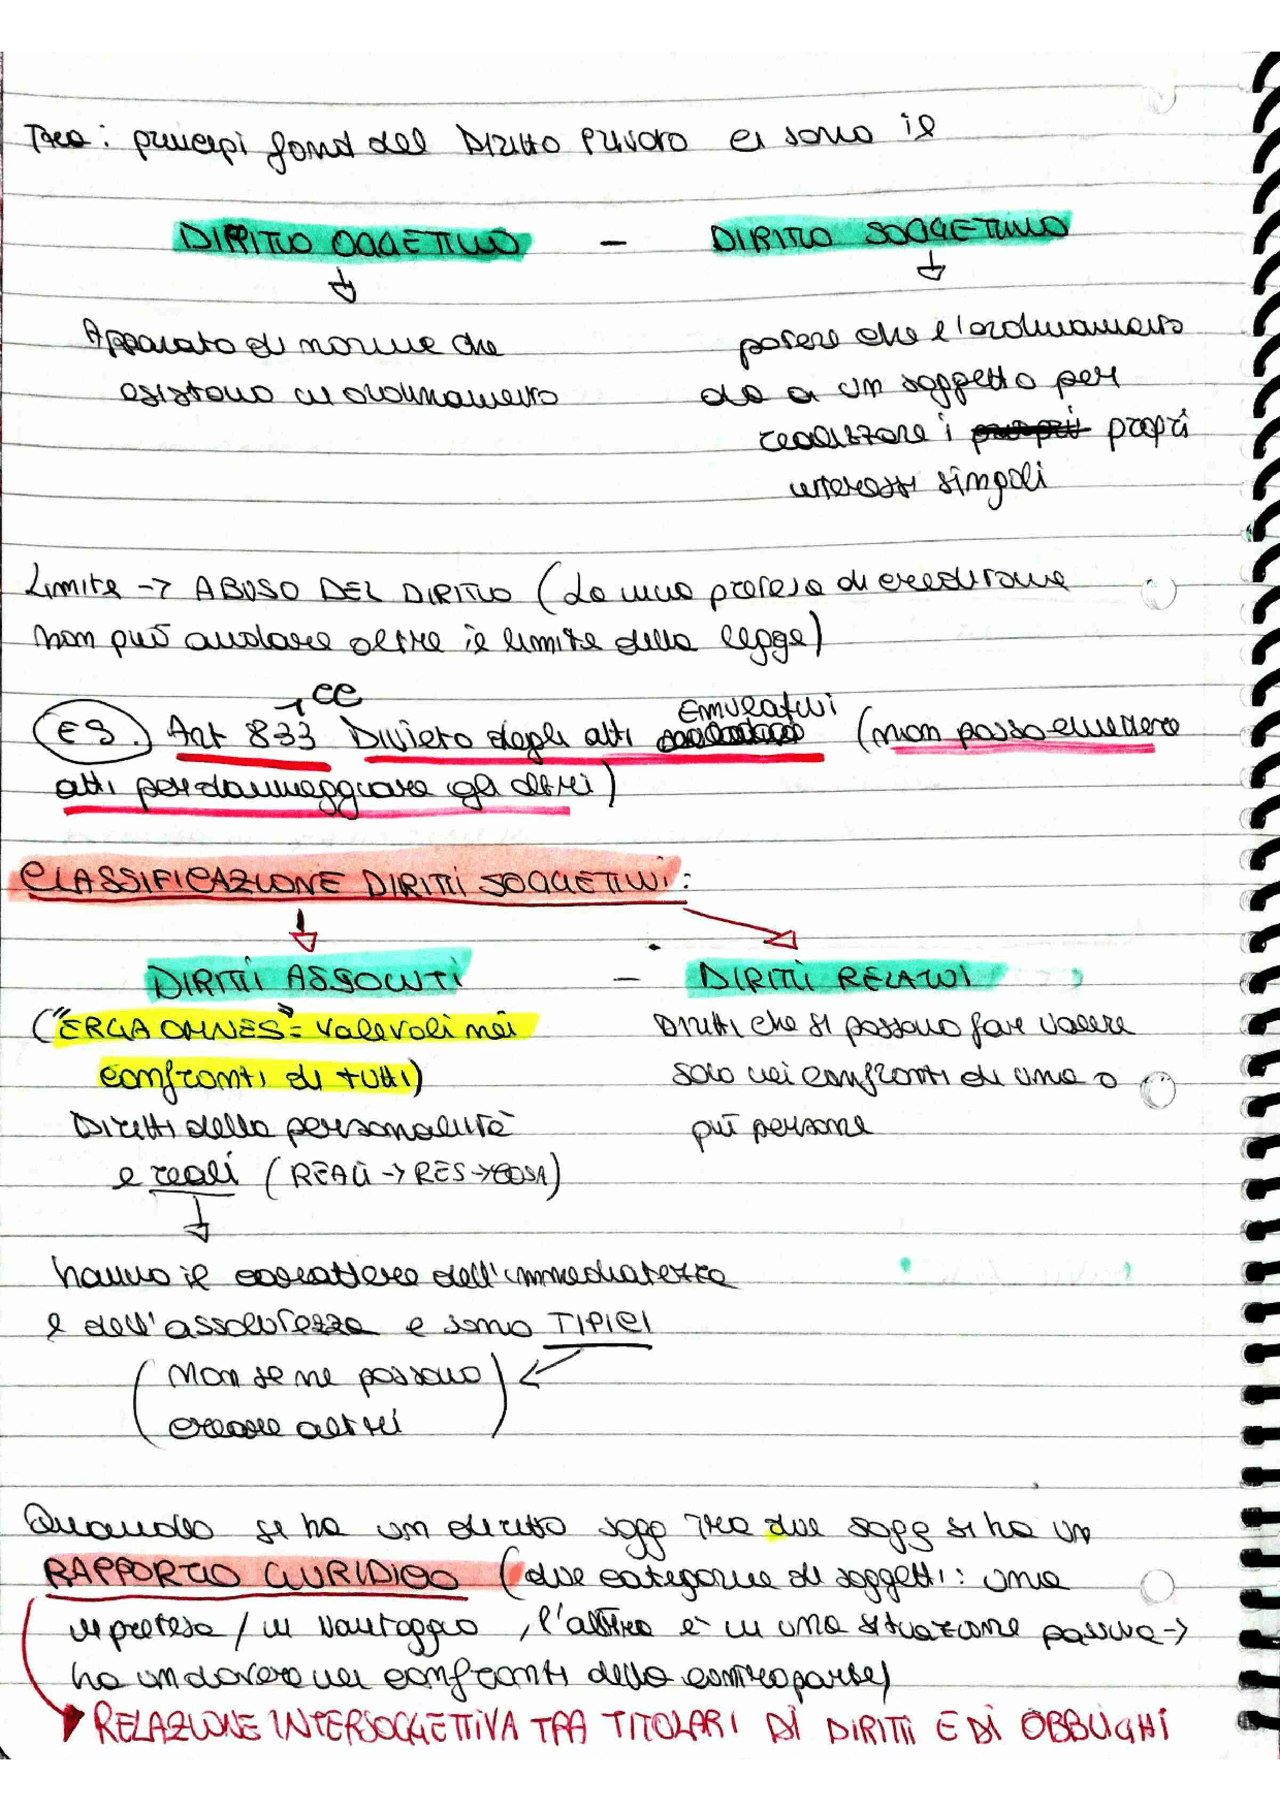 Tra i principi fond del Diritto Privato ci sono il
DIRITTO OGGETTIVO - DIRITTO SOGGETTIVO
Apparato di norme che
esistono in ordinamento
potere che l'ordinamento
da a un soggetto per
realizzare i propri propri
interessi singoli
Limite -> ABUSO DEL DIRITTO (La mia pretesa di creditore
non può andare oltre il limite della legge)
CC
ES. Art 833 Divieto degli atti Emulativi (non posso emettere
atti per danneggiare gli altri)
CLASSIFICAZIONE DIRITTI SOGGETTIVI:
DIRITTI ASSOLUTI - DIRITTI RELATIVI
("ERGA OMNES" = valevoli nei
confronti di tutti)
Diritti della personalità
e reali (REALI -> RES -> COSA)
Diritti che si possono far valere
solo nei confronti di una o
più persone
hanno il carattere dell'immediatezza
e dell'assolutezza e sono TIPICI
(Non se ne possono
creare altri)
Quando si ha un diritto sogg tra due sogg si ha un
RAPPORTO GIURIDICO (due categorie di soggetti: una
in pretesa / in vantaggio, l'altra è in una situazione passiva ->
ha un dovere nei confronti della controparte)
RELAZIONE INTERSOGGETTIVA TRA TITOLARI DI DIRITTI E DI OBBLIGHI